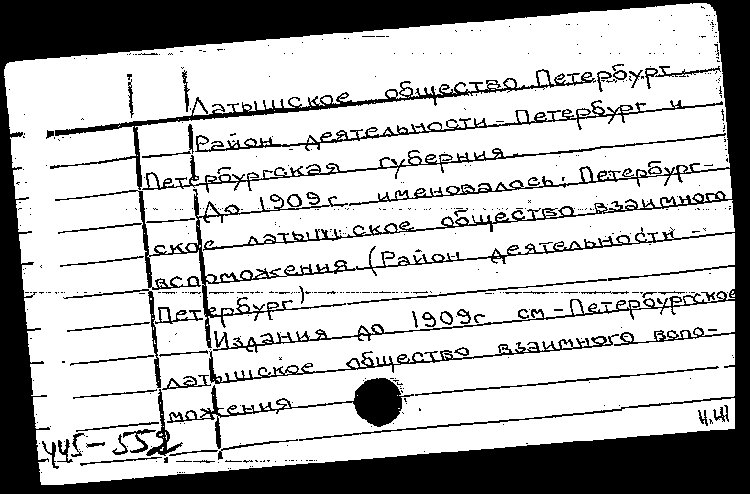 Латышское общество. Петербург.
Район деятельности - Петербург и
Петербургская губерния.
До 1909 г. именовалось: Петербург-
ское латышское общество взаимного
вспоможения. (Район деятельности -
Петербург)
Издания до 1909 г. см - Петербургское
латышское общество взаимного вспо-
можения
445-552